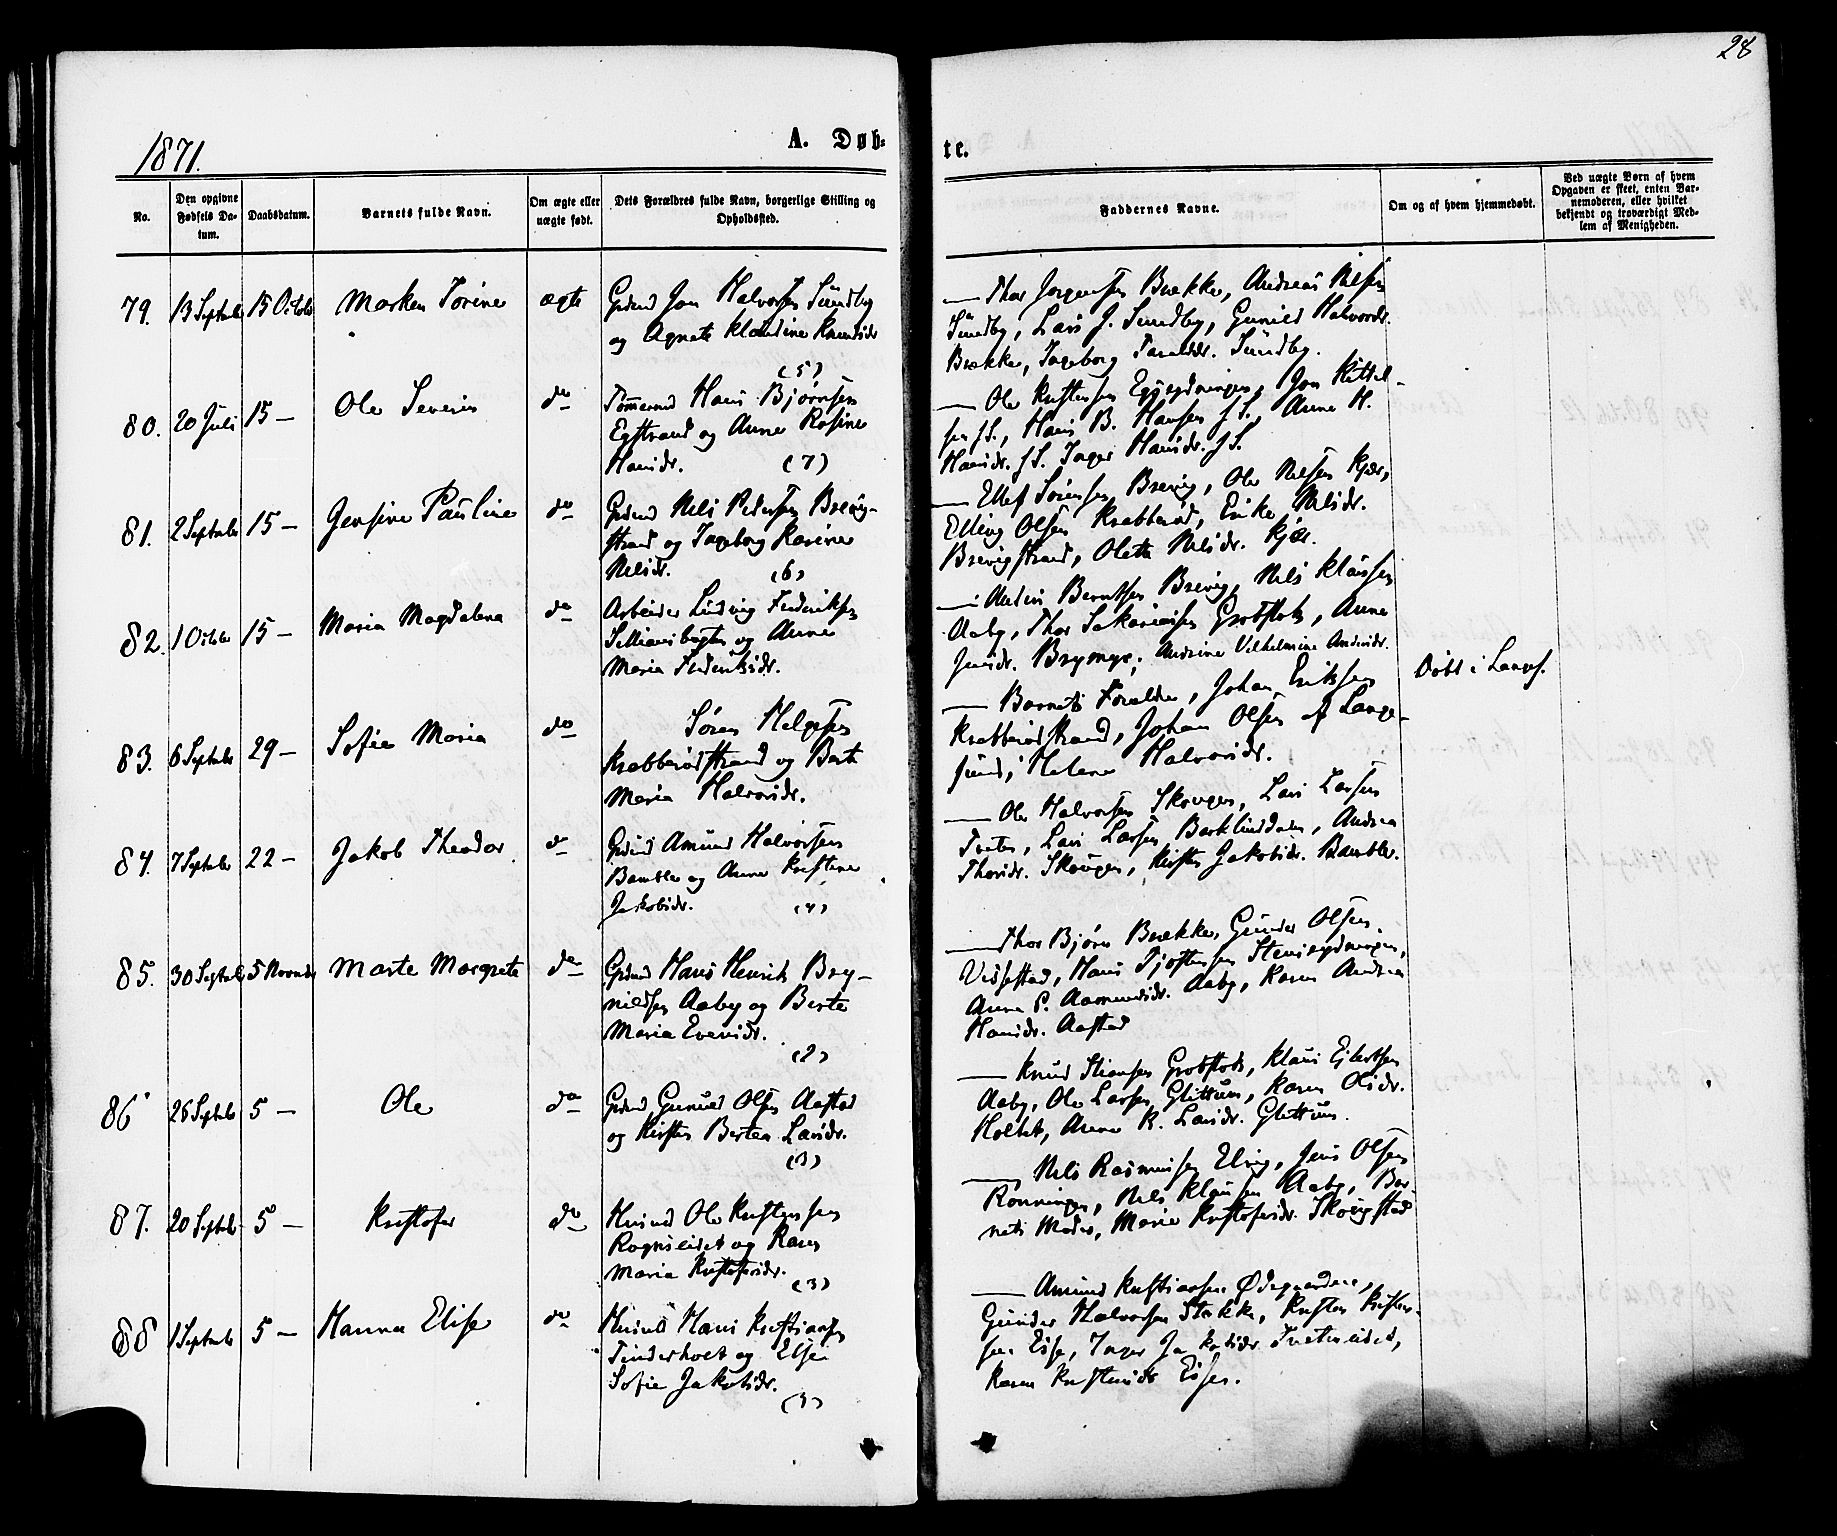 28
1871.
A. Døb-
te.
No.
Den opgivne Fødsels Datum.
Daabsdatum.
Barnets fulde Navn.
Om ægte eller uægte født.
Dets Forældres fulde Navn, borgerlige Stilling og Opholdssted.
Faddernes Navne.
Om og af hvem hjemmedøbt.
Ved uægte Børn af hvem Opgaven er skeet, enten Barnemoderen, eller hvilket bekjendt og troværdigt Medlem af Menigheden.
79. 13 Septmbr 15 Octobr Maren Torine ægte
Grdmd Jon Halvorsen Sundby
og Agnete Klaudine Knudsdr
(5)
— Thor Jørgensen Brække, Andreas Nilsen
Sundby, Lars J. Sundby, Gunild Halvorsdr.
Brække, Ingeborg Taraldsdr. Sundby.
80. 20 Juli 15 — Ole Severin do
Tømmermd Hans Bjørnsen
Egstrand og Anne Rosine
Hansdr. (7)
— Ole Kristensen Eggsrydningen, Jon Kittel-
sen sS., Hans B. Hansen sS., Anne H.
Hansdr. sS. Inger Hansdr. sS.
81. 2 Septmbr 15 — Gensine Pauline do
Grdmd Nils Pedersen Brevig-
strand og Ingeborg Karine
Nilsdr. (6)
— Ellef Sørensen Brevig, Ole Nilsen Kjær,
Elling Olsen Krabberød, Erike Nilsdr.
Brevigstrand, Olete Nilsdr. Kjær.
82. 1 Octobr 15 — Maria Magdalena do
Arbeider Ludvig Frederiksen
og Anne
Maria Frederiksdr.
— Berntsen Brevig, Nils Klausen
Aaby, Thor Sakariasen Grobstok, Anne
Jensdr. Andrine Vilhelmine
83. 6 Septmbr 29 — Sofie Maria do
Søren Helgesen
Krabberødstrand og Berte
Maria Halvorsdr.
— Barnets Forældre, Johan Eriksen
Krabberødstrand, Johan Olsen af Lange-
sund, Helene Halvorsdr.
Døbt i Langs.
84. 7 Septmbr 22 — Jakob Theodor do
Grdmd Amund Halvorsen
Bamble og Anne Kristine
Jakobsdr. (4)
— Ole Halvorsen Skougen, Lars Larsen
Tveten, Lars Larsen Barklinddalen, Andrea
Thorsdr. Skougen, Kirsten Jakobsdr. Bamble.
85. 30 Septmbr 5 Novmbr Marte Margrete do
Grdmd Hans Henrik Bry-
nildsen Aaby og Berte
Maria Evensdr.
(2)
— Thor Bjørn Brække, Gunder Olsen
Vissestad, Hans Tjøstensen Stensrydningen,
Anne P. Aamundsdr. Aaby, Karen Andrea
Hansdr. Aastad
86 26 Septmbr 5 — Ole do
Grdmd Gunuld Olsen Aastad
og Kirsten Bertea Larsdr.
(3)
— Knud Stiansen Grobstok, Klaus Ejlertsen
Aaby, Ole Larsen Glittum, Karen Olsdr.
Holtet, Anne K. Larsdr. Glittum.
87. 20 Septmbr 5 — Kristofer do
Husmd Ole Kristensen
Rognsleidet og Karen
Maria Kristofersdr. (3)
— Nils Rasmusen Elvig, Jens Olsen
Rønningen, Nils Klausen Aaby, Bar
nets Moder, Marie Kristofersdr. Skougstad
88 1 Septmbr 5 — Hanna Elise do
Husmd Hans Kristiansen
Tinderholt og Elsse
Sofie Jakobsdr.
(3)
— Amund Kristiansen Ødegaarden,
Gunder Halvorsen Stokke, Kristen Kristen-
sen Eise, Inger Jakobsdr. Tveteneidet,
Karen Kristensdr Eiser.